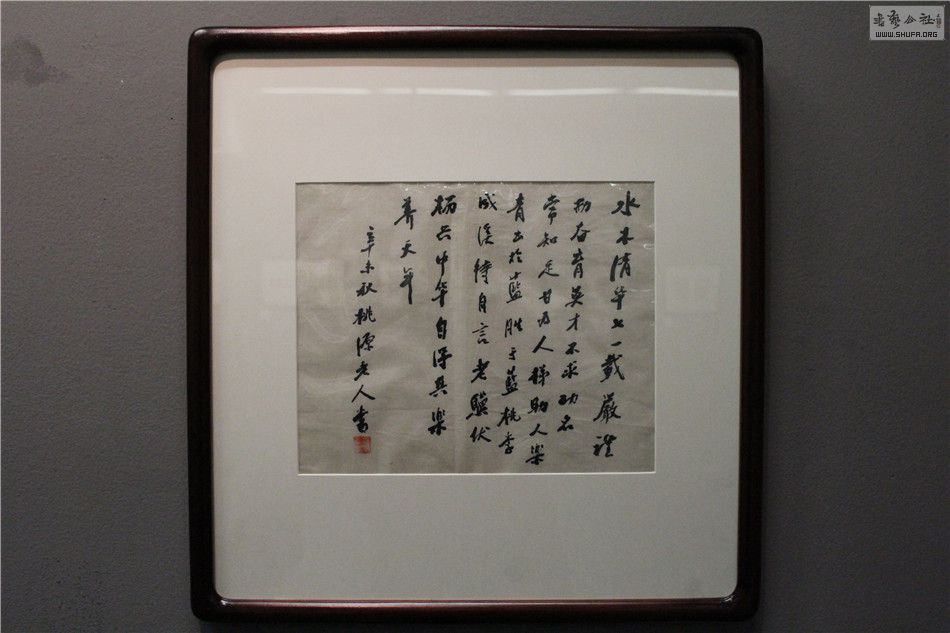 水木清华七一载严礼
勤奋育英才不求功名
常知足甘为人梯助人乐
青出於蓝胜于蓝桃李
成溪待自言老骥伏
枥六中年自得其乐
养天年
辛未秋桃源老人书
书艺公社
WWW.SHUFA.ORG